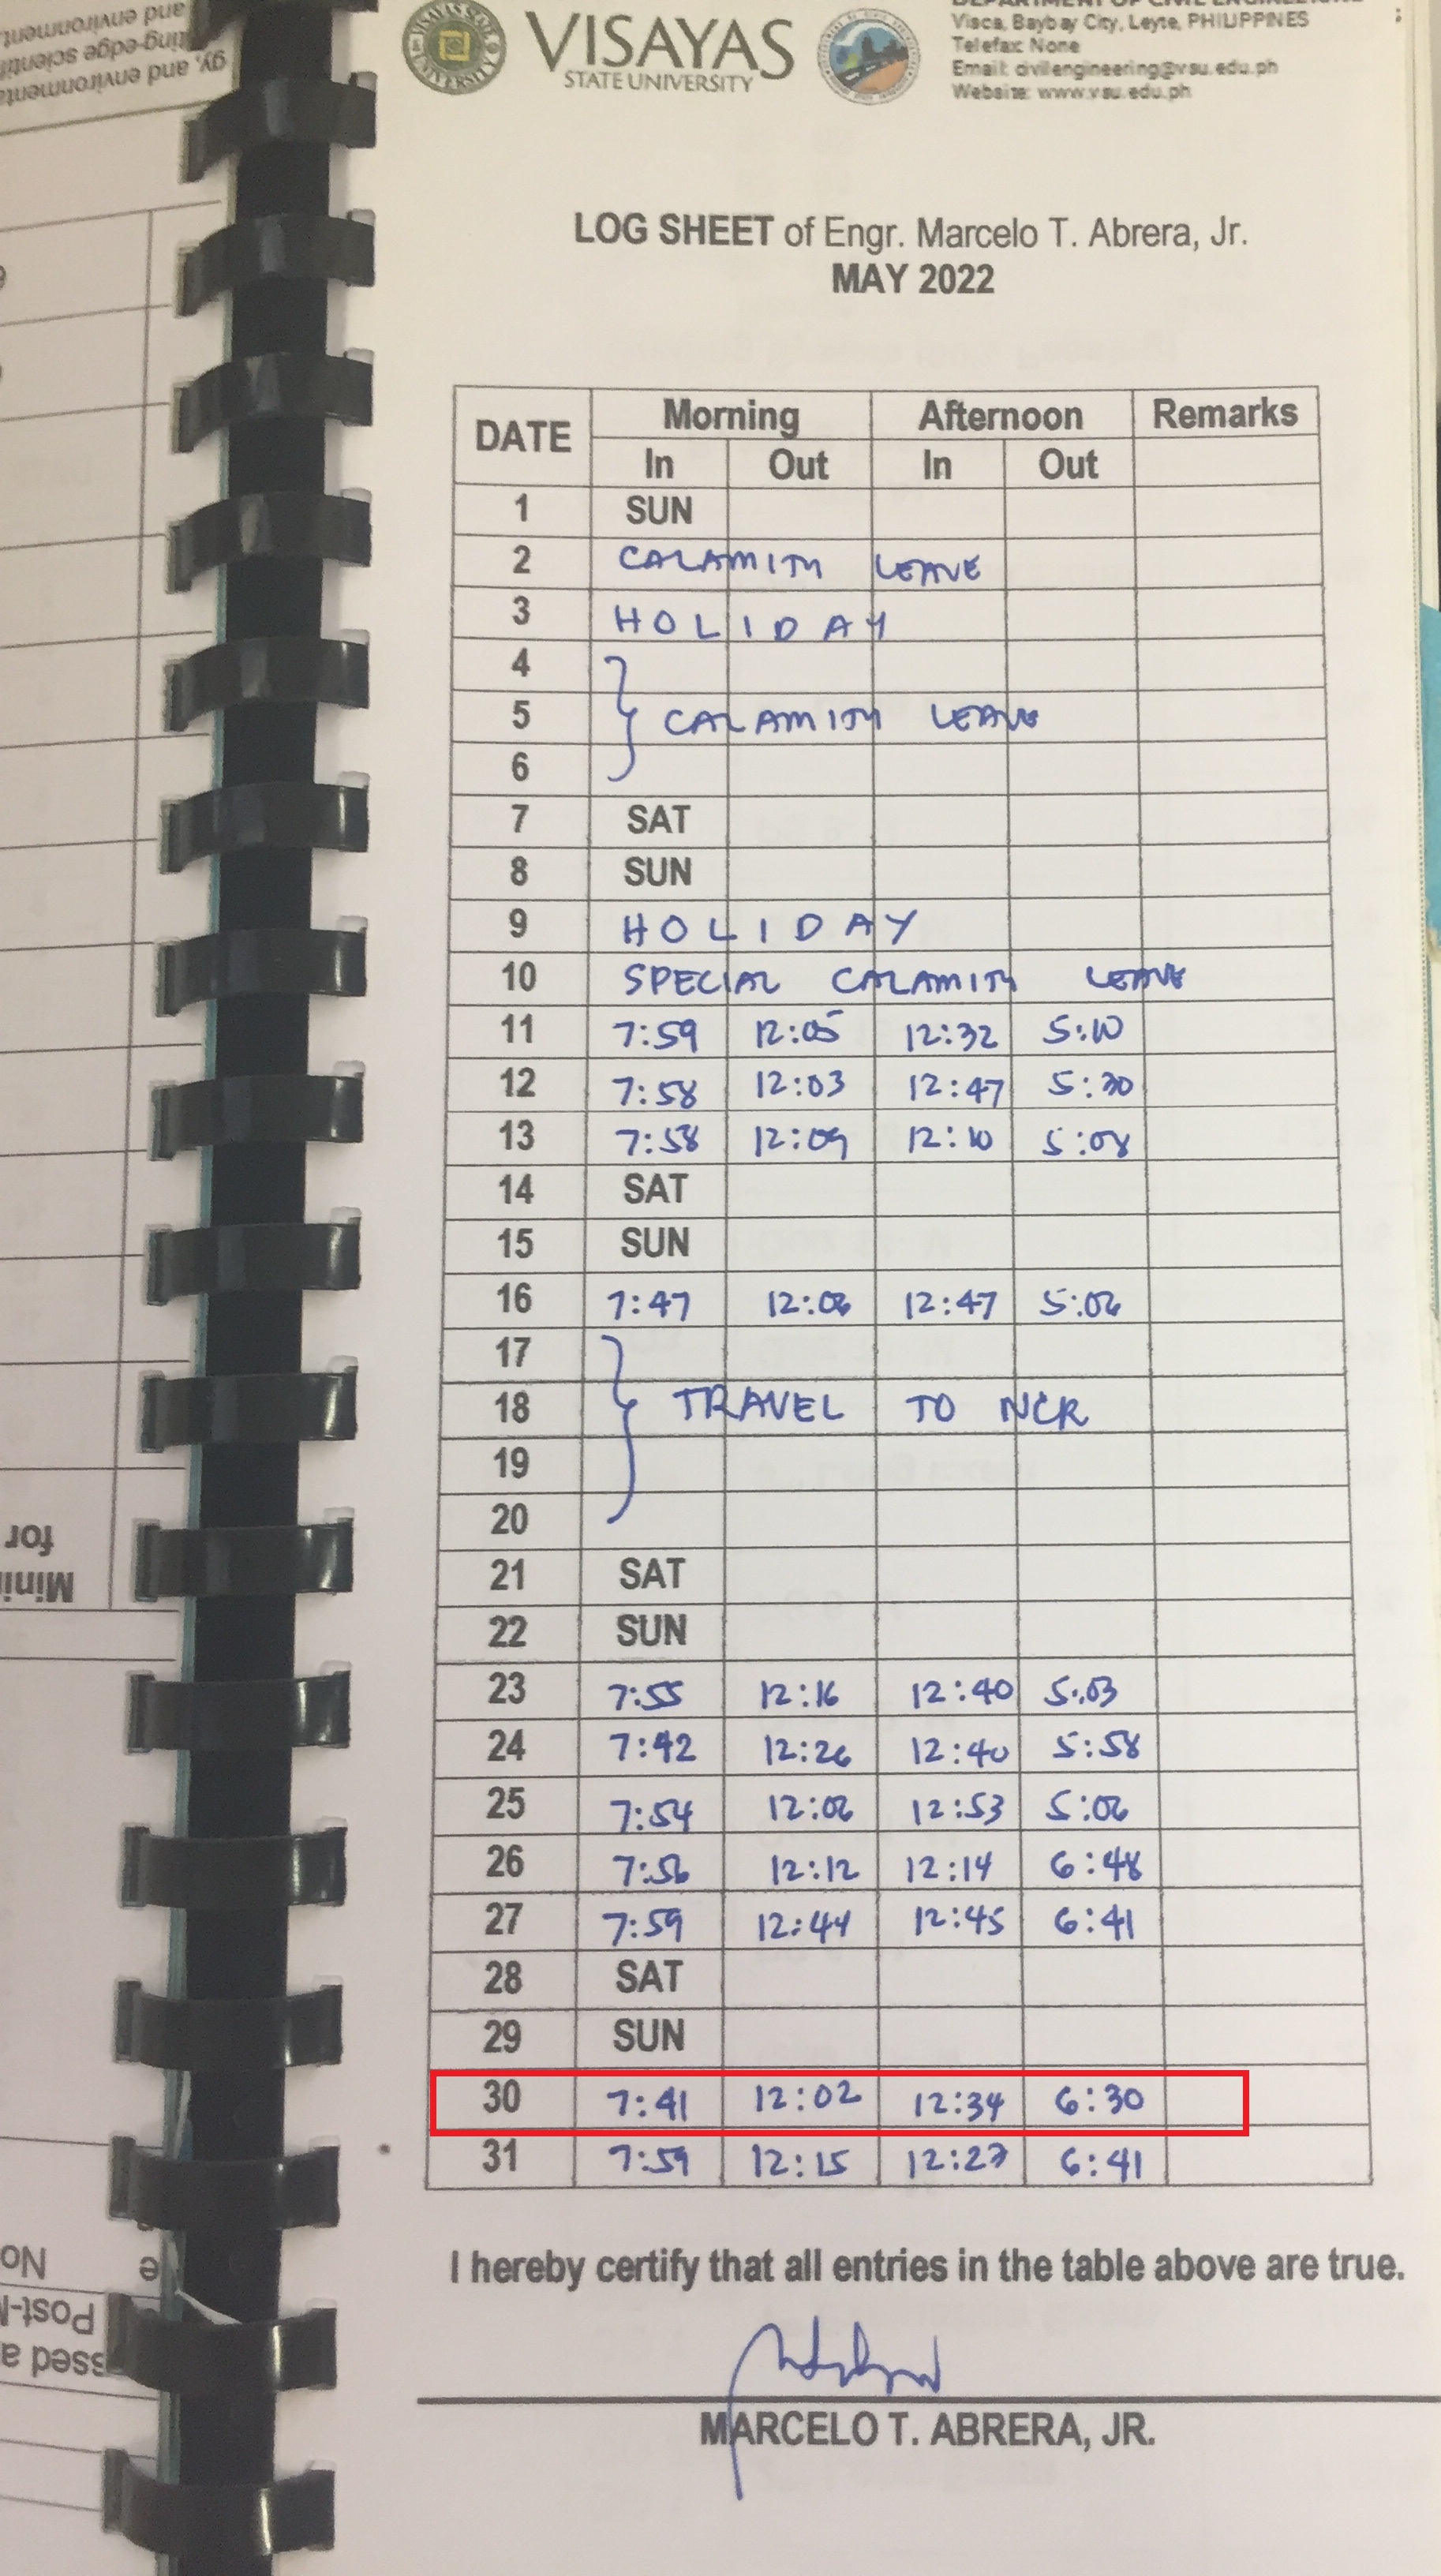 VISAYAS
STATE UNIVERSITY
Visca, Baybay City, Leyte, PHILIPPINES
Telefax: None
Email: civilengineering@vsu.edu.ph
Website: www.vsu.edu.ph
LOG SHEET of Engr. Marcelo T. Abrera, Jr.
MAY 2022
DATE Morning Afternoon Remarks
In Out In Out
1 SUN
2 CALAMITY LEAVE
3 HOLIDAY
4
5 CALAMITY LEAVE
6
7 SAT
8 SUN
9 HOLIDAY
10 SPECIAL CALAMITY LEAVE
11 7:59 12:05 12:32 5:10
12 7:58 12:03 12:47 5:30
13 7:58 12:09 12:10 5:08
14 SAT
15 SUN
16 7:47 12:06 12:47 5:06
17
18 TRAVEL TO NCR
19
20
21 SAT
22 SUN
23 7:55 12:16 12:40 5:03
24 7:42 12:26 12:40 5:58
25 7:54 12:06 12:53 5:06
26 7:56 12:12 12:14 6:48
27 7:59 12:44 12:45 6:41
28 SAT
29 SUN
30 7:41 12:02 12:34 6:30
31 7:59 12:15 12:27 6:41
I hereby certify that all entries in the table above are true.
MARCELO T. ABRERA, JR.